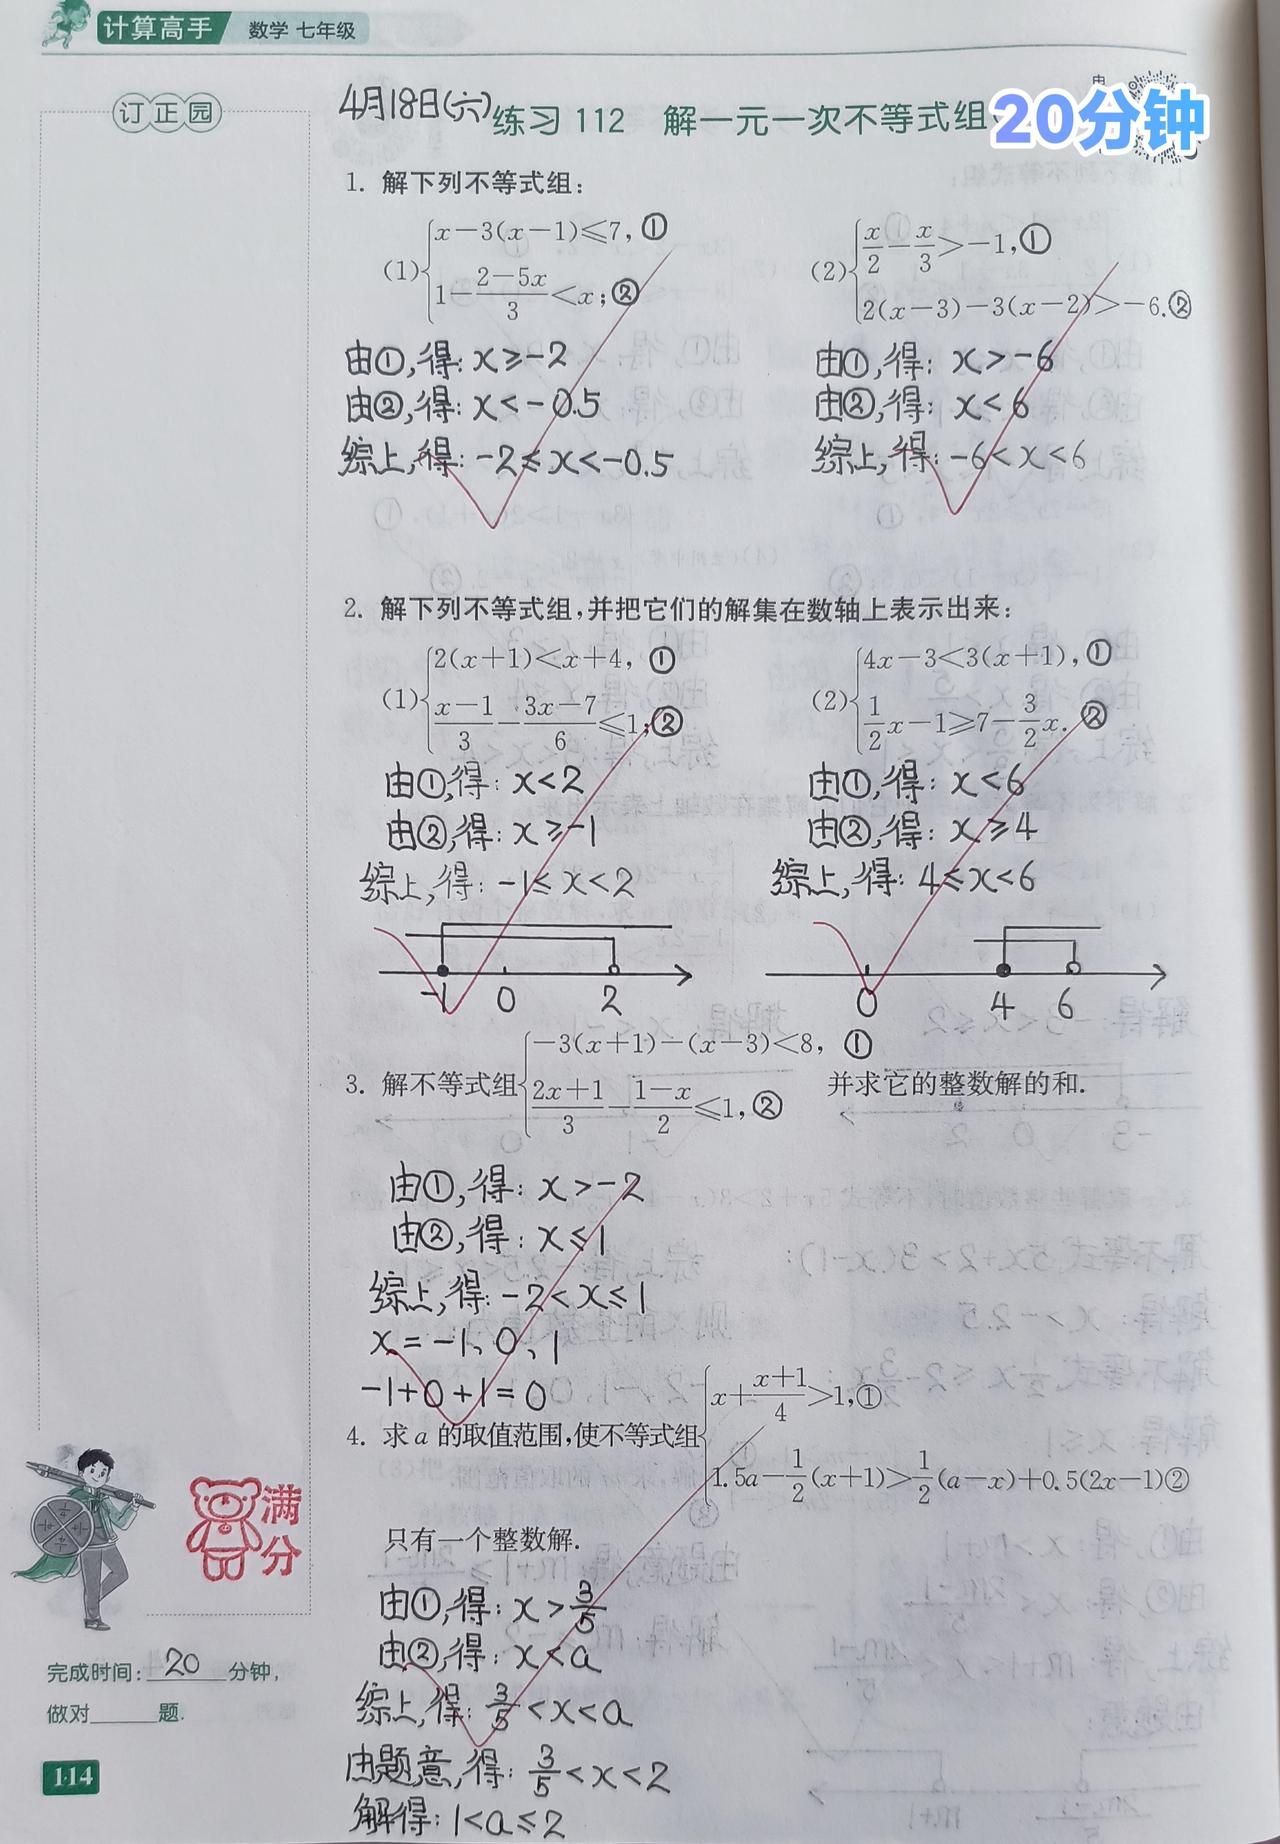 计算高手 数学 七年级
订正园
4月18日(六) 练习 112 解一元一次不等式组
20分钟
1. 解下列不等式组:
(1) { x-3(x-1)≤7, ①
1-(2-5x)/3<x; ②
由①,得: x≥-2
由②,得: x<-0.5
综上,得: -2≤x<-0.5
(2) { x/2-x/3>-1, ①
2(x-3)-3(x-2)>-6. ②
由①,得: x>-6
由②,得: x<6
综上,得: -6<x<6
2. 解下列不等式组,并把它们的解集在数轴上表示出来:
(1) { 2(x+1)<x+4, ①
(x-1)/3-(3x-7)/6≤1; ②
由①,得: x<2
由②,得: x≥-1
综上,得: -1≤x<2
-1 0 2
(2) { 4x-3<3(x+1), ①
1/2x-1≥7-3/2x. ②
由①,得: x<6
由②,得: x≥4
综上,得: 4≤x<6
0 4 6
3. 解不等式组 { -3(x+1)-(x-3)<8, ①
(2x+1)/3-(1-x)/2≤1, ② 并求它的整数解的和.
由①,得: x>-2
由②,得: x≤1
综上,得: -2<x≤1
x=-1、0、1
-1+0+1=0
4. 求 a 的取值范围,使不等式组 { x+(x+1)/4>1, ①
1.5a-1/2(x+1)>1/2(a-x)+0.5(2x-1) ②
只有一个整数解.
由①,得: x>3/5
由②,得: x<a
综上,得: 3/5<x<a
由题意,得: 3/5<x<2
解得: 1<a≤2
满分
完成时间: 20 分钟,
做对______题.
114